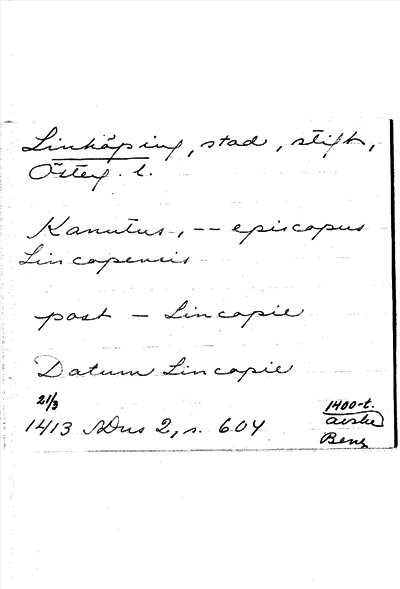 Linköping, stad, stift,
Österg. l.
Kanutus, -- episcopus
Lincopensis
post - Lincopie
Datum Lincopie
21/3
1413 SDns 2, s. 604
1400-t.
avskr
Benz